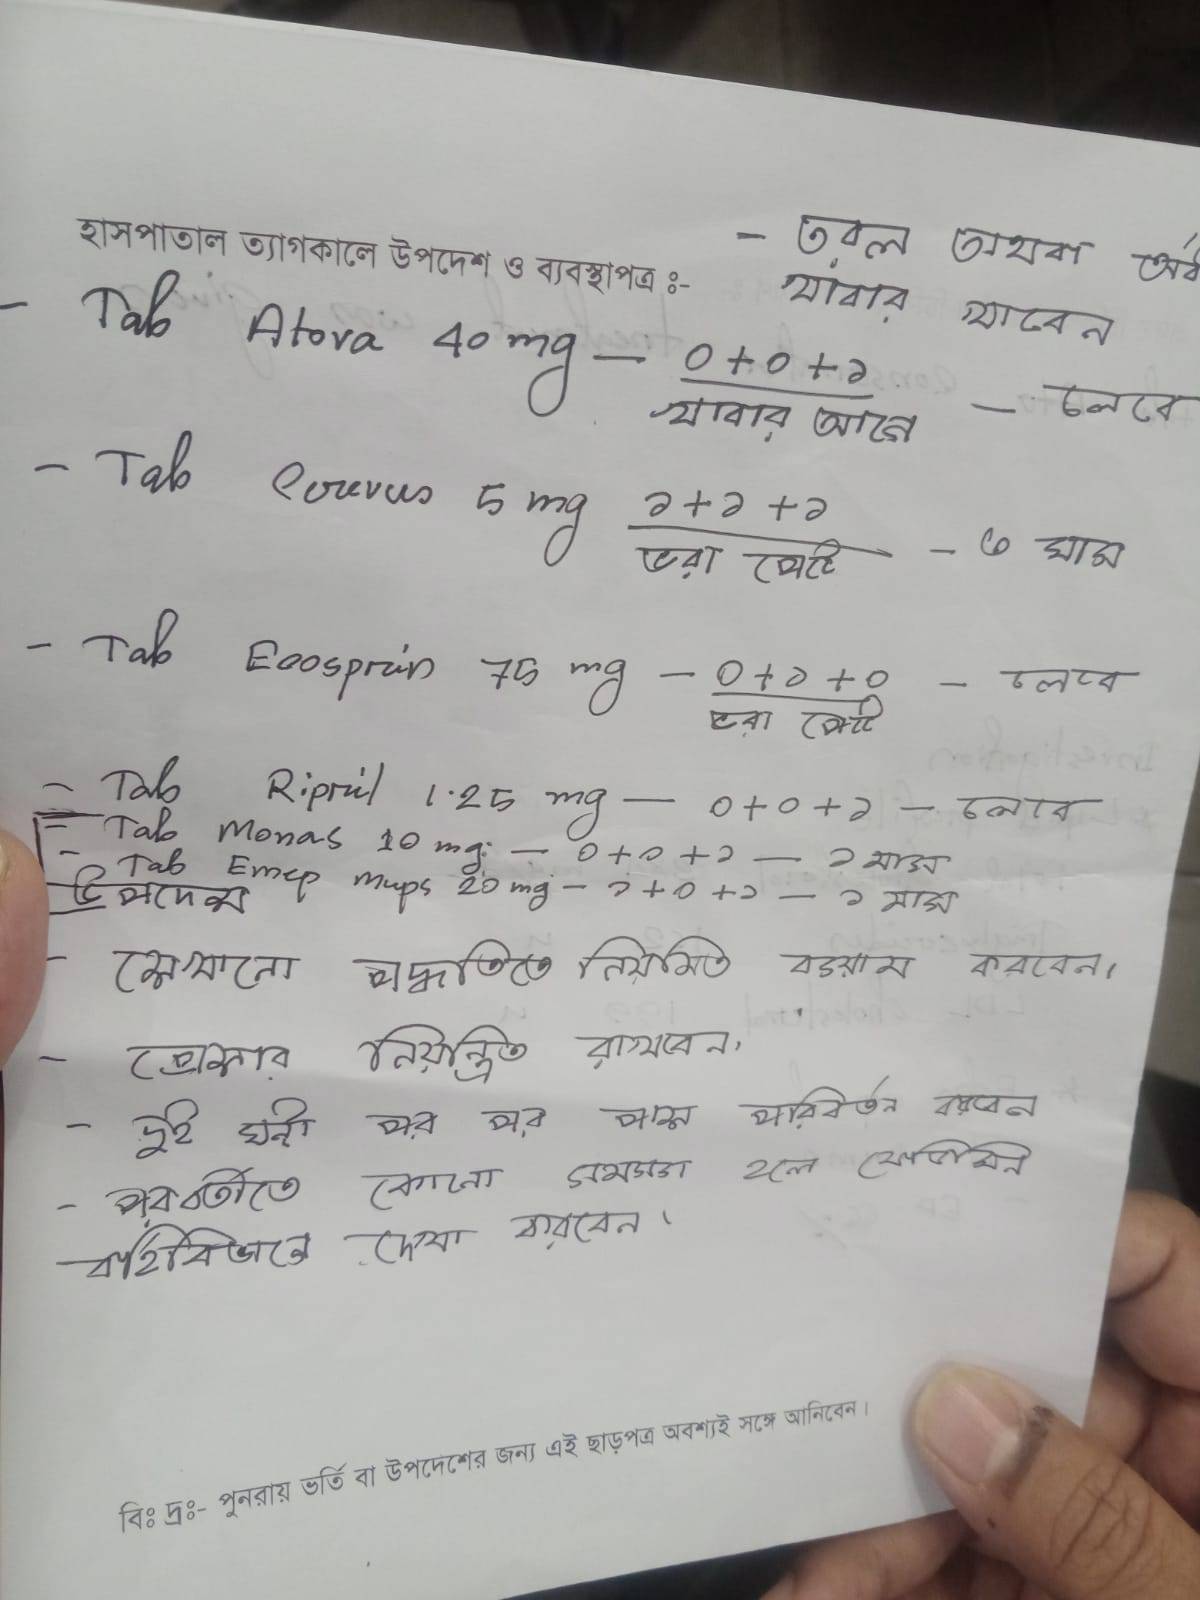 হাসপাতাল ত্যাগকালে উপদেশ ও ব্যবস্থাপত্র :-
- তরল অথবা অর্ধ
খাবার খাবেন
- Tab Atova 40 mg — ০+০+১ — চলবে
খাবার আগে
- Tab 5 mg ১+১+১ - ৬ মাস
ভরা পেটে
- Tab Ecosprin 75 mg — ০+১+০ — চলবে
ভরা পেটে
- Tab Ripril 1.25 mg — ০+০+১ — চলবে
- Tab Monas 10 mg. — ০+০+১ — ১ মাস
- Tab Emep mups 20 mg — ১+০+১ — ১ মাস
উপদেশ
- শেখানো পদ্ধতিতে নিয়মিত ব্যয়াম করবেন।
- প্রেসার নিয়ন্ত্রিত রাখবেন।
- দুই ঘন্টা পর পর পাশ পরিবর্তন করবেন
- পরবর্তীতে কোনো সমস্যা হলে মেডিসিন
বর্হিবিভাগে দেখা করবেন।
বিঃ দ্রঃ- পুনরায় ভর্তি বা উপদেশের জন্য এই ছাড়পত্র অবশ্যই সঙ্গে আনিবেন।